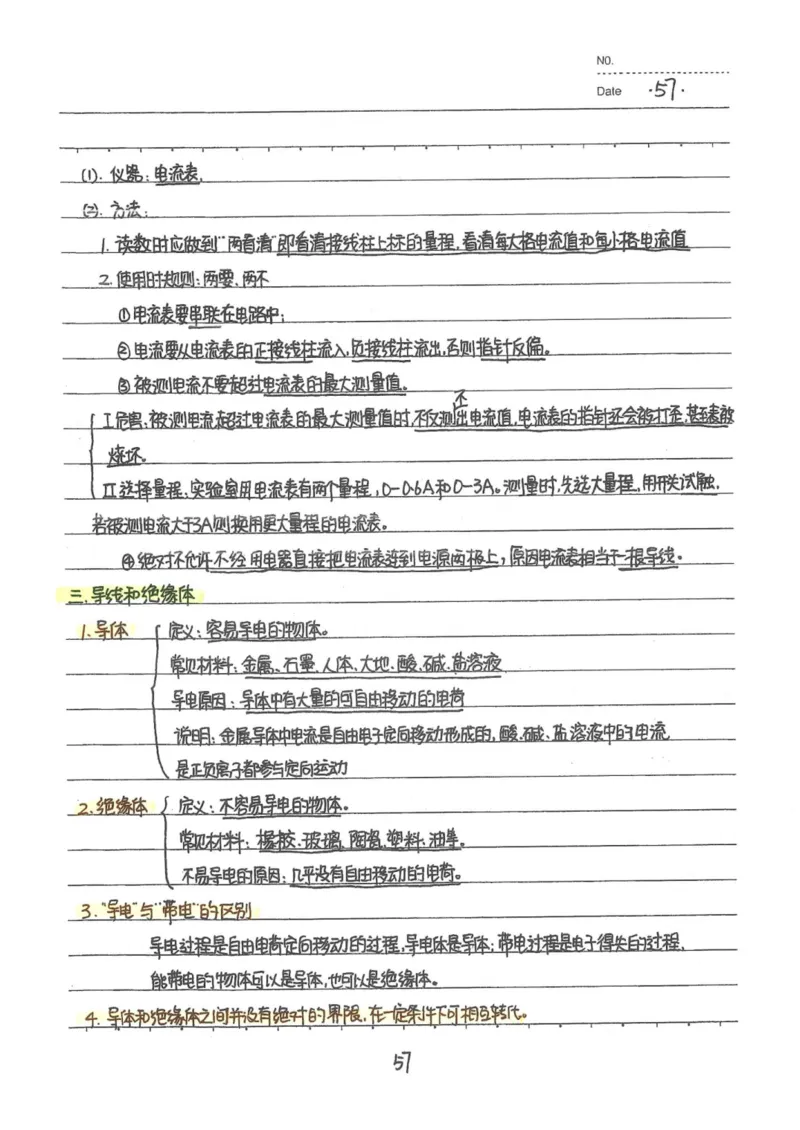 NO.
Date ·57·
(1). 仪器:电流表.
(2). 方法:
1. 读数时应做到"两看清"即看清接线柱上标的量程,看清每大格电流值和每小格电流值
2. 使用时规则:两要、两不
①电流表要串联在电路中;
②电流要从电流表的正接线柱流入,负接线柱流出,否则指针反偏。
③被测电流不要超过电流表的最大测量值。
Ⅰ危害:被测电流超过电流表的最大测量值时,不仅测不出电流值,电流表的指针还会被打歪,甚至表被
烧坏。
Ⅱ选择量程:实验室用电流表有两个量程,0-0.6A和0-3A。测量时,先选大量程,用开关试触,
若被测电流大于3A则换用更大量程的电流表。
④绝对不允许不经用电器直接把电流表连到电源两极上,原因电流表相当于一根导线。
三.导线和绝缘体
1.导体 定义:容易导电的物体。
常见材料:金属、石墨、人体、大地、酸、碱、盐溶液
导电原因:导体中有大量的可自由移动的电荷
说明:金属导体中电流是自由电子定向移动形成的,酸、碱、盐溶液中的电流
是正负离子都参与定向运动
2.绝缘体 定义:不容易导电的物体。
常见材料:橡胶、玻璃、陶瓷、塑料、油等。
不易导电的原因:几乎没有自由移动的电荷。
3."导电"与"带电"的区别
导电过程是自由电荷定向移动的过程,导电体是导体;带电过程是电子得失的过程,
能带电的物体可以是导体,也可以是绝缘体。
4.导体和绝缘体之间并没有绝对的界限,在一定条件下可相互转化。
57